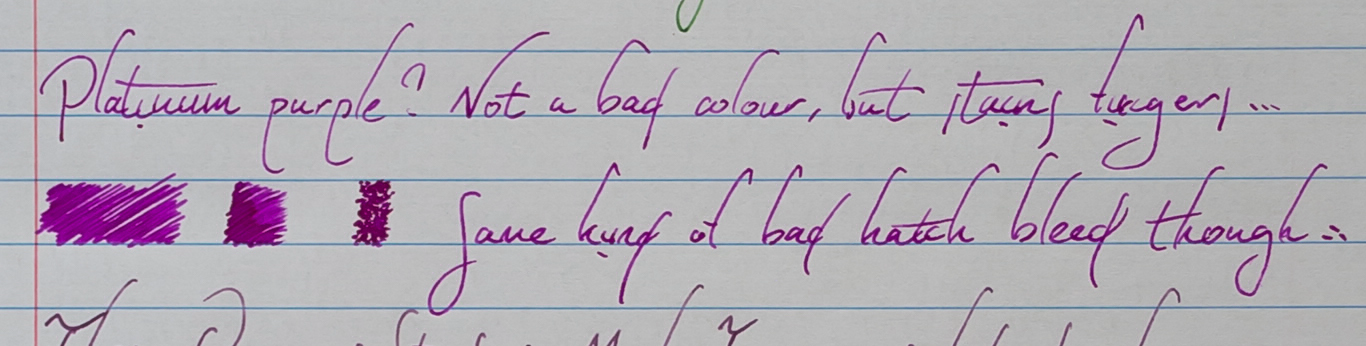 Platinum purple? Not a bad colour, but stains fingers ...
Same kind of bad hatch bleed though :-